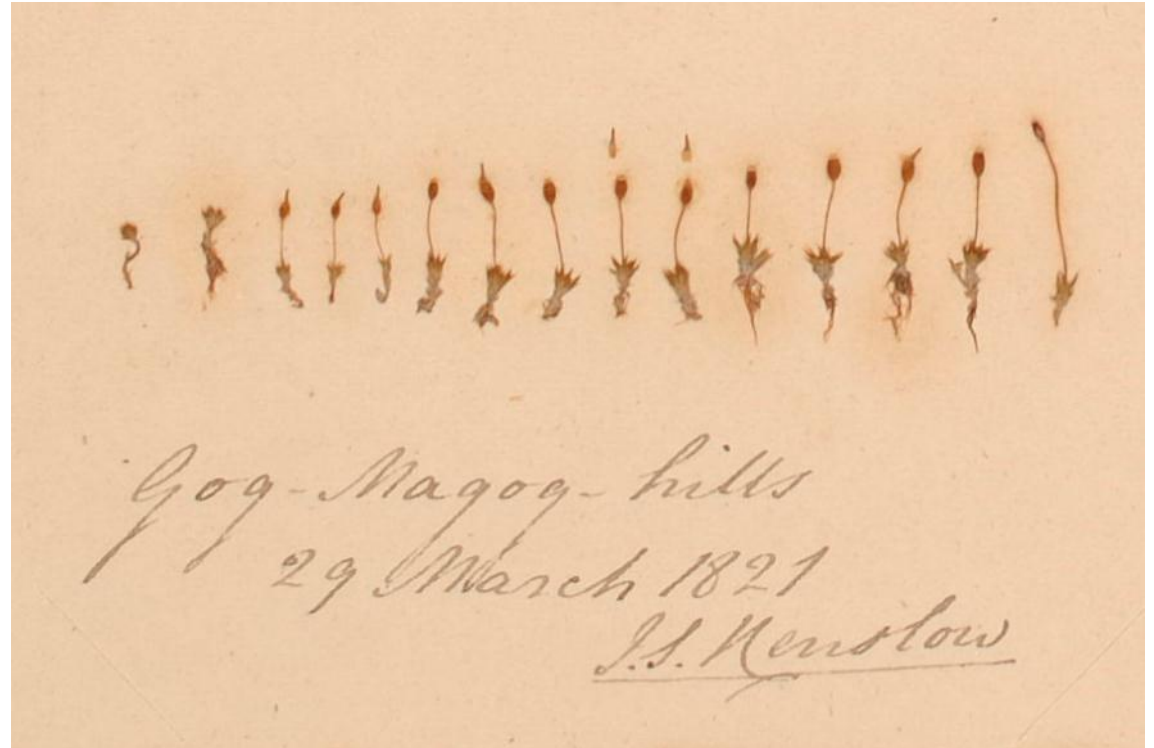 Gog-Magog-hills
29 March 1821
J.S. Henslow